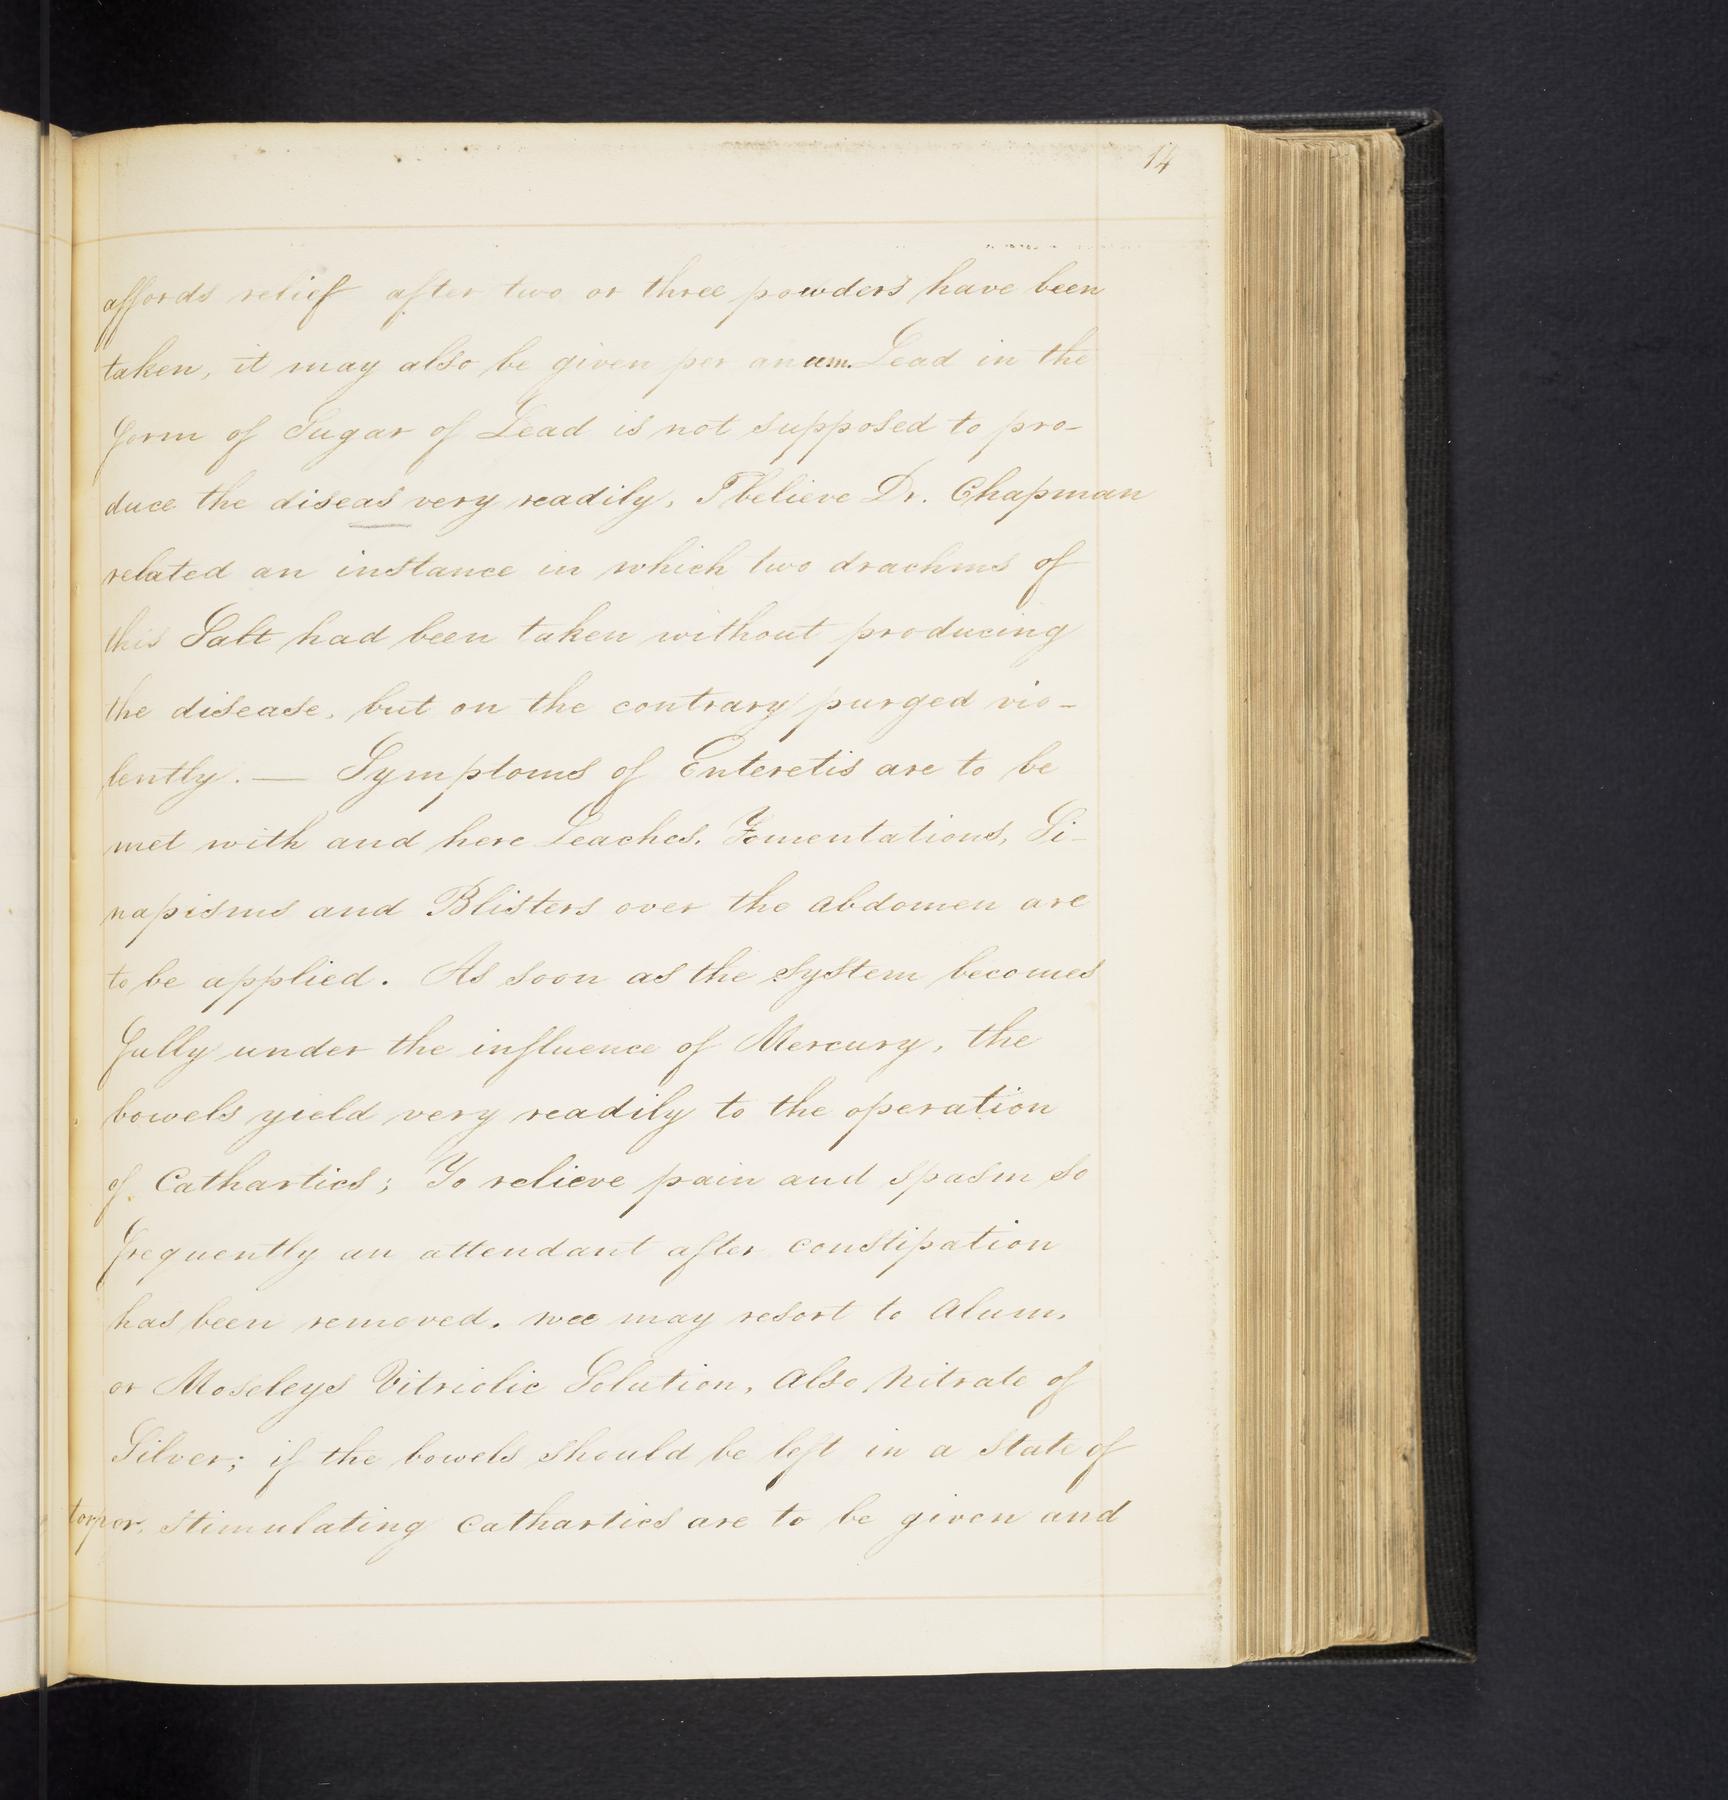 14
affords relief after two or three powders have been
taken, it may also be given per anum. Lead in the
form of Sugar of Lead is not supposed to pro-
duce the diseas very readily, I believe Dr. Chapman
related an instance in which two drachms of
this Salt had been taken without producing
the disease, but on the contrary purged vio-
lently. — Symptoms of Enteretis are to be
met with and here Leaches, Fomentations, Si-
napisms and Blisters over the abdomen are
to be applied. As soon as the system becomes
fully under the influence of Mercury, the
bowels yield very readily to the operation
of Cathartics; To relieve pain and spasm so
frequently an attendant after constipation
has been removed, wee may resort to Alum,
or Moseleys Vitriolic Solution, Also Nitrate of
Silver; if the bowels should be left in a state of
torper, stimulating cathartics are to be given and